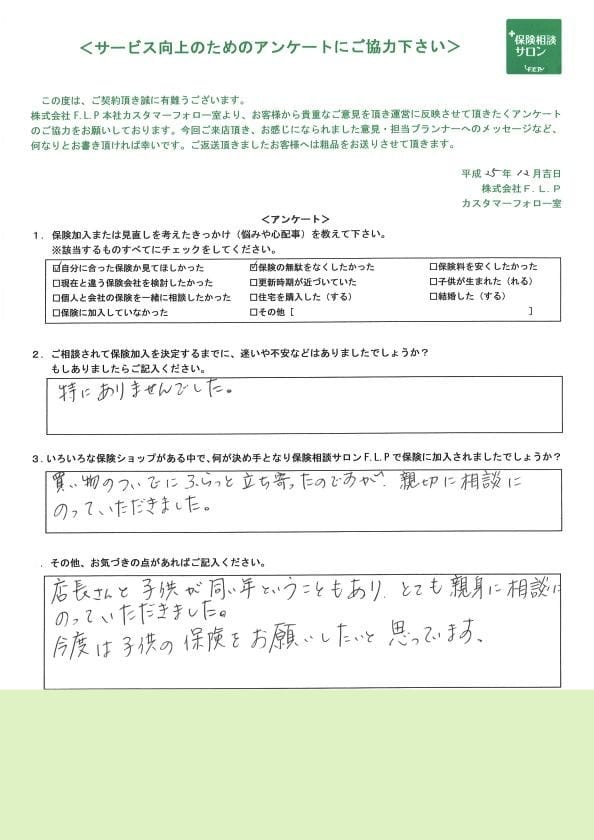 ＜サービス向上のためのアンケートにご協力下さい＞
保険相談
サロン
F.L.P
この度は、ご契約頂き誠に有難うございます。
株式会社F.L.P本社カスタマーフォロー室より、お客様から貴重なご意見を頂き運営に反映させて頂きたくアンケート
のご協力をお願いしております。今回ご来店頂き、お感じになられました意見・担当プランナーへのメッセージなど、
何なりとお書き頂ければ幸いです。ご返送頂きましたお客様へは粗品をお送りさせて頂きます。
平成 25年 12月吉日
株式会社F.L.P
カスタマーフォロー室
＜アンケート＞
1．保険加入または見直しを考えたきっかけ（悩みや心配事）を教えて下さい。
※該当するものすべてにチェックをしてください。
☑自分に合った保険か見てほしかった ☑保険の無駄をなくしたかった □保険料を安くしたかった
□現在と違う保険会社を検討したかった □更新時期が近づいていた □子供が生まれた（れる）
□個人と会社の保険を一緒に相談したかった □住宅を購入した（する） □結婚した（する）
□保険に加入していなかった □その他［ ］
2．ご相談されて保険加入を決定するまでに、迷いや不安などはありましたでしょうか？
もしありましたらご記入ください。
特にありませんでした。
3．いろいろな保険ショップがある中で、何が決め手となり保険相談サロンF.L.Pで保険に加入されましたでしょうか？
買い物のついでにふらっと立ち寄ったのですが、親切に相談に
のっていただきました。
．その他、お気づきの点があればご記入ください。
店長さんと子供が同い年ということもあり、とても親身に相談に
のっていただきました。
今度は子供の保険をお願いしたいと思っています。